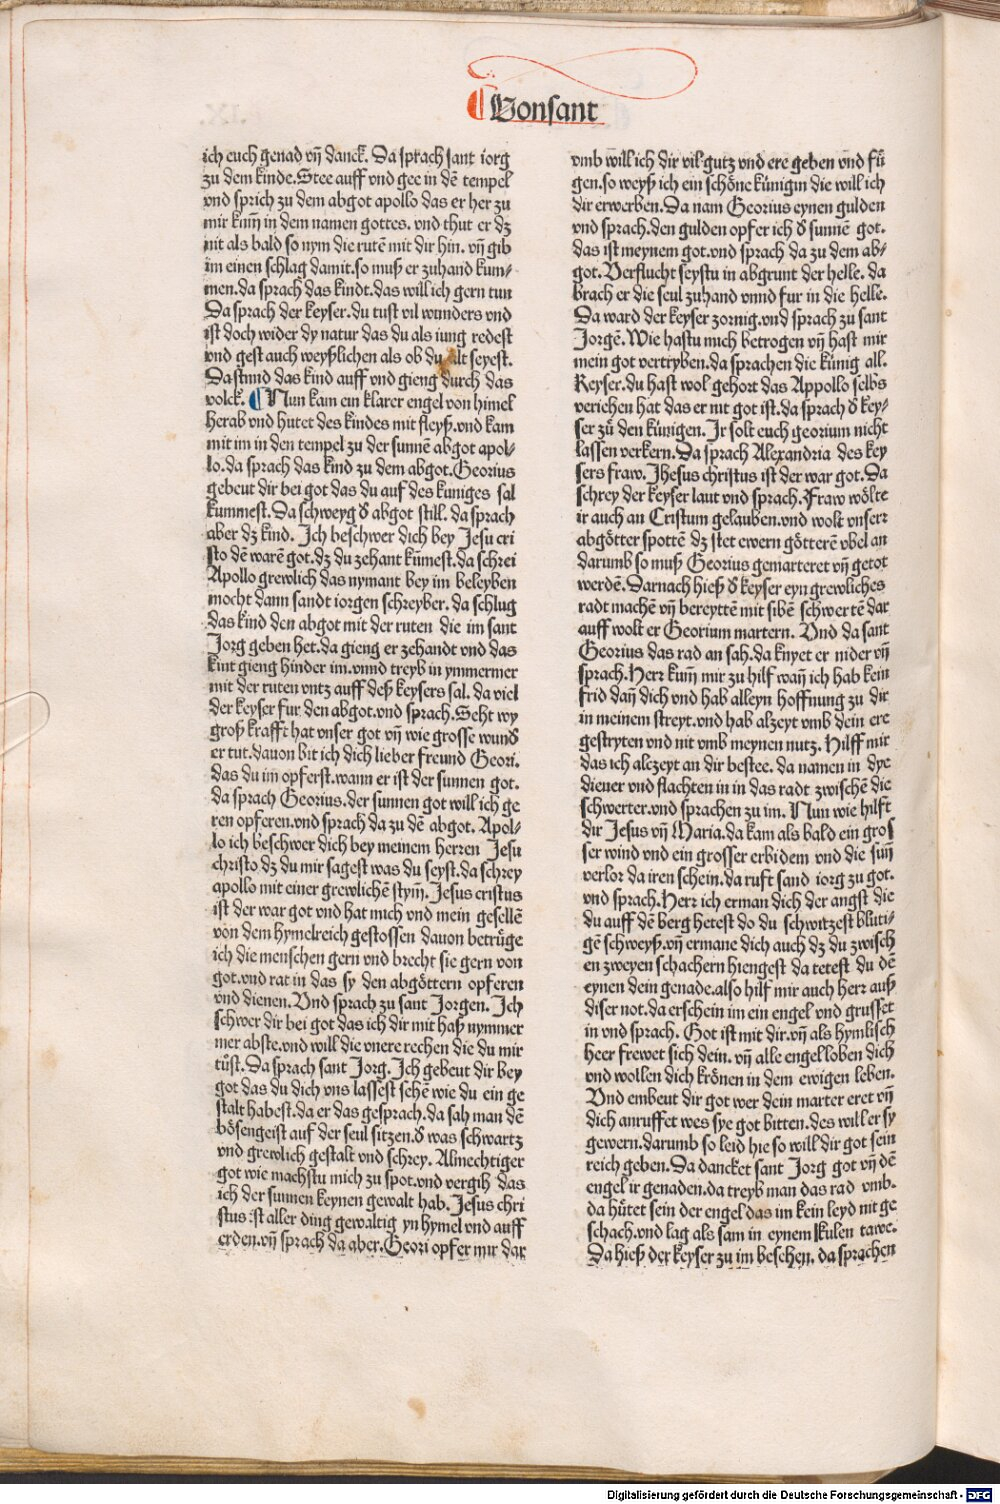 ¶ Von sant
ich euch genad vn̄ danck. Da sprach sant iorg
zu dem kinde. Stee auff vnd gee in dē tempel
vnd sprich zu dem abgot apollo das er her zu
mir kumm in dem namen gottes. vnd thut er dz
nit als bald so nym die rutē mit dir hin. vn̄ gib
im einen schlag damit. so muß er zuhand kum⸗
men. da sprach das kindt. das will ich gern tun
Da sprach der keyser. du tust vil wunders vnd
ist doch wider dy natur das du als iung redest
vnd gest auch weyßlichen als ob du alt seyest.
Da stund das kind auff vnd gieng durch das
volck. ¶ Nun kam ein klarer engel von himel
herab vnd hutet des kindes mit fleyß. vnd kam
mit im in den tempel zu der sunnē abgot apol⸗
lo. da sprach das kind zu dem abgot. Georius
gebeut dir bei got das du auf des kuniges sal
kummest. Da schweyg d̕ abgot still. da sprach
aber dz kind. Ich beschwer dich bey Jesu cri
sto dē warē got. dz du zehant kūmest. da schrei
Apollo grewlich das nymant bey im beleyben
mocht dann sandt iorgen schreyber. da schlug
das kind den abgot mit der ruten die im sant
Jorg geben het. da gieng er zehandt vnd das
kint gieng hinder im. vnnd treyb in ymmermer
mit der ruten vntz auff deß keysers sal. da viel
der keyser fur den abgot. vnd sprach. Seht wy
groß krafft hat vnser got vn̄ wie grosse wund̕
er tut. dauon bit ich dich lieber freund Geori.
das du im opferst. wann er ist der sunnen got.
da sprach Georius. der sunnen got will ich ge
ren opferen. vnd sprach da zu dē abgot. Apol⸗
lo ich beschwer dich bey meinem herren Jesu
christo dz du mir sagest was du seyst. da schrey
apollo mit einer grewlichē stym̄. Jesus cristus
ist der war got vnd hat mich vnd mein gesellē
von dem hymelreich gestossen dauon betrüge
ich die menschen gern vnd brecht sie gern von
got. vnd rat in das sy den abgöttern opferen
vnd dienen. Vnd sprach zu sant Jorgen. Ich
schwer dir bei got das ich dir mit haß nymmer
mer abste. vnd will die vnere rechen die du mir
tüst. Da sprach sant Jorg. Ich gebeut dir bey
got das du dich vns lassest sehē wie du ein ge
stalt habest. da er das gesprach. da sah man dē
bösengeist auf der seul sitzen. d̕ was schwartz
vnd grewlich gestalt vnd schrey. Almechtiger
got wie machstu mich zu spot. vnd vergih das
ich der sunnen keynen gewalt hab. Jesus chri
stus ist aller ding gewaltig yn hymel vnd auff
erden. vn̄ sprach da aber. Geori opfer mir dar
vmb will ich dir vil gutz vnd ere geben vnd fü
gen. so weyß ich ein schöne künigin die will ich
dir erwerben. Da nam Georius eynen gulden
vnd sprach. den gulden opfer ich d̕ sunnē got.
das ist meynem got. vnd sprach da zu dem ab⸗
got. Verflucht seystu in abgrunt der helle. da
brach er die seul zuhand vnnd fur in die helle.
Da ward der keyser zornig. vnd sprach zu sant
Jorgē. Wie hastu mich betrogen vn̄ hast mir
mein got vertryben. da sprachen die künig all.
Keyser. du hast wol gehort das Appollo selbs
veriehen hat das er nit got ist. da sprach d̕ key⸗
ser zu den künigen. Ir solt euch georium nicht
lassen verkern. Da sprach Alexandria des key
sers fraw. Jhesus christus ist der war got. Da
schrey der keyser laut vnd sprach. Fraw wölte
ir auch an Cristum gelauben. vnd wolt vnserr
abgötter spottē dz stet ewern götterē vbel an
darumb so muß Georius gemarteret vn̄ getot
werdē. Darnach hieß d̕ keyser eyn grewliches
radt machē vn̄ bereyttē mit sibē schwertē dar
auff wolt er Georium martern. Vnd da sant
Georius das rad an sah. da knyet er nider vn̄
sprach. Herr kum̄ mir zu hilf wan̄ ich hab kein
frid dan̄ dich vnd hab alleyn hoffnung zu dir
in meinem streyt. vnd hab alzeyt vmb dein ere
gestryten vnd nit vmb meynen nutz. Hilff mir
das ich alezeyt an dir bestee. da namen in dye
diener vnd flachten in in das radt zwischē die
schwerter. vnd sprachen zu im. Nun wie hilft
dir Jesus vn̄ Maria. da kam als bald ein gros
ser wind vnd ein grosser erbidem vnd die sun̄
verlor da iren schein. da ruft sand iorg zu got.
vnd sprach. Herr ich erman dich der angst die
du auff dē berg hetest do du schwitzest bluti⸗
gē schweyß. vn̄ ermane dich auch dz du zwisch
en zweyen schachern hiengest da tetest du dē
eynen dein genade. also hilf mir auch herr auß
diser not. da erschein im ein engel vnd grusset
in vnd sprach. Got ist mit dir. vn̄ als hymlisch
heer frewet sich dein. vn̄ alle engel loben dich
vnd wollen dich krönen in dem ewigen leben.
Vnd embeut dir got wer dein marter eret vn̄
dich anruffet wes sye got bitten. des will er sy
gewern. darumb so leid hie so will dir got sein
reich geben. Da dancket sant Jorg got vn̄ dē
engel ir genaden. da treyb man das rad vmb.
da hütet sein der engel das im kein leyd nit ge
schach. vnd lag als sam in eynem kulen tawe.
Da hieß der keyser zu im besehen. da sprachen
Digitalisierung gefördert durch die Deutsche Forschungsgemeinschaft - DFG